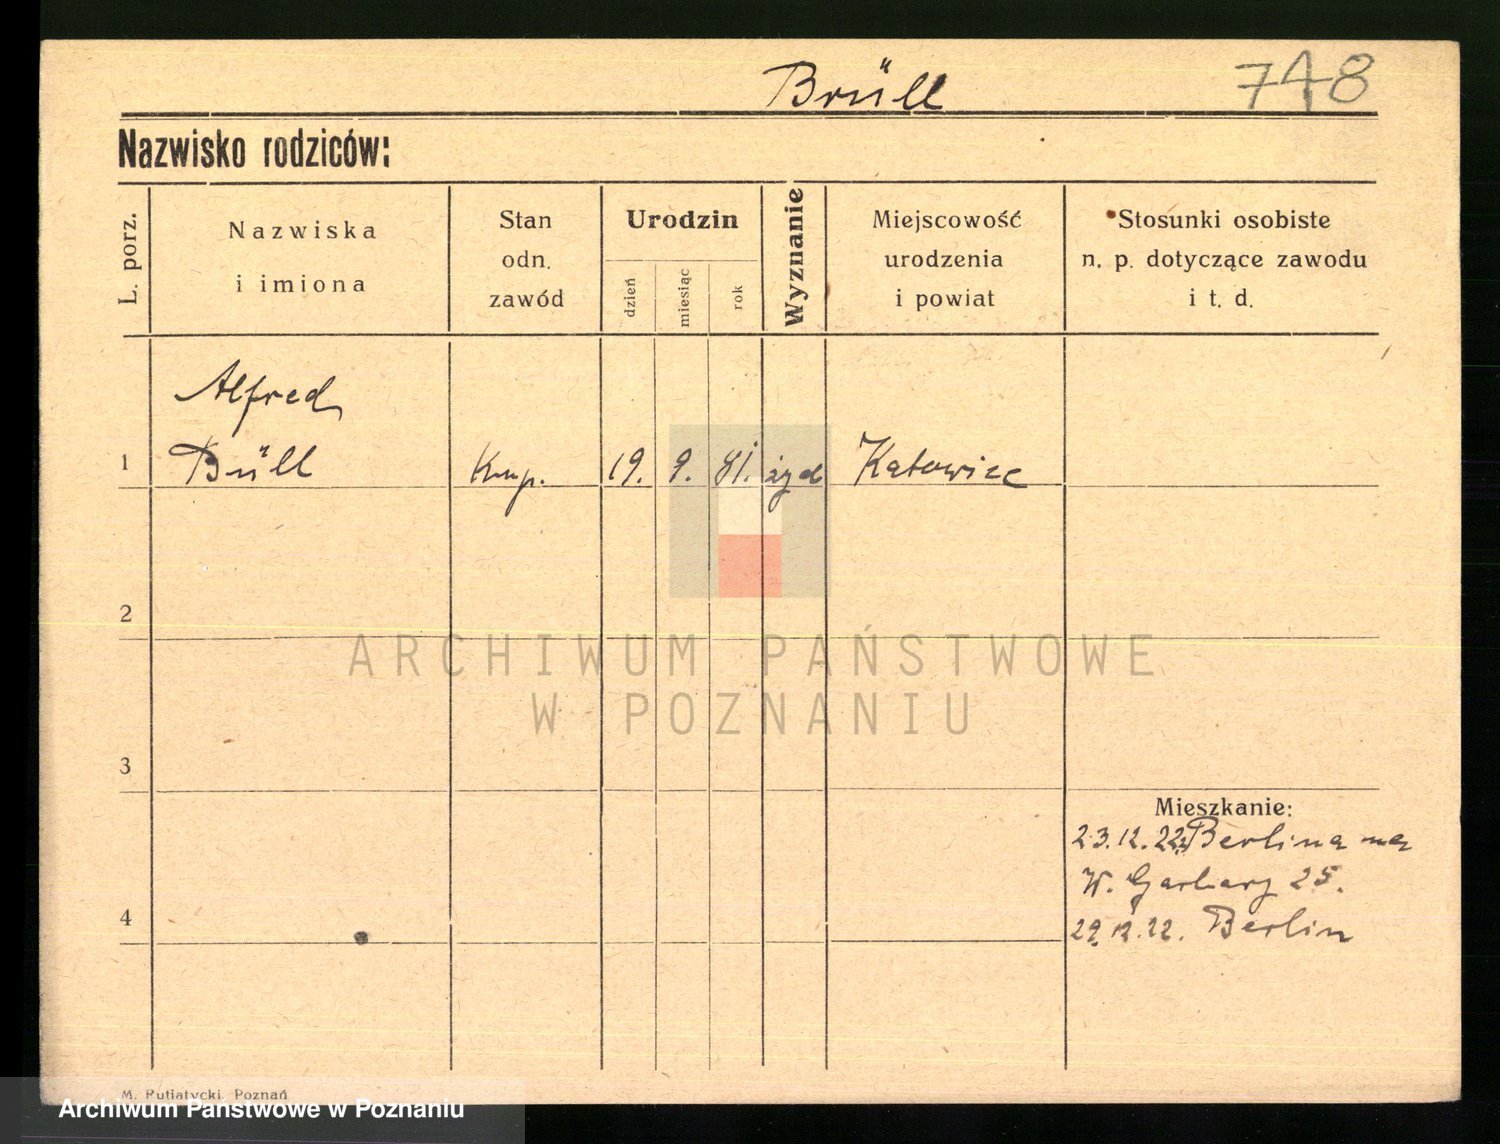 Brüll
748
Nazwisko rodziców:
L. porz.
Nazwiska
i imiona
Stan
odn.
zawód
Urodzin
dzień
miesiąc
rok
Wyznanie
Miejscowość
urodzenia
i powiat
Stosunki osobiste
n. p. dotyczące zawodu
i t. d.
Alfred
1 Brüll Kup. 19. 9. 81. żyd Katowice
2
ARCHIWUM PAŃSTWOWE
W POZNANIU
3
Mieszkanie:
23.12.22 z Berlina na
W. Garbary 25.
4
29.12.22. Berlin
M. Putiatycki, Poznań
Archiwum Państwowe w Poznaniu